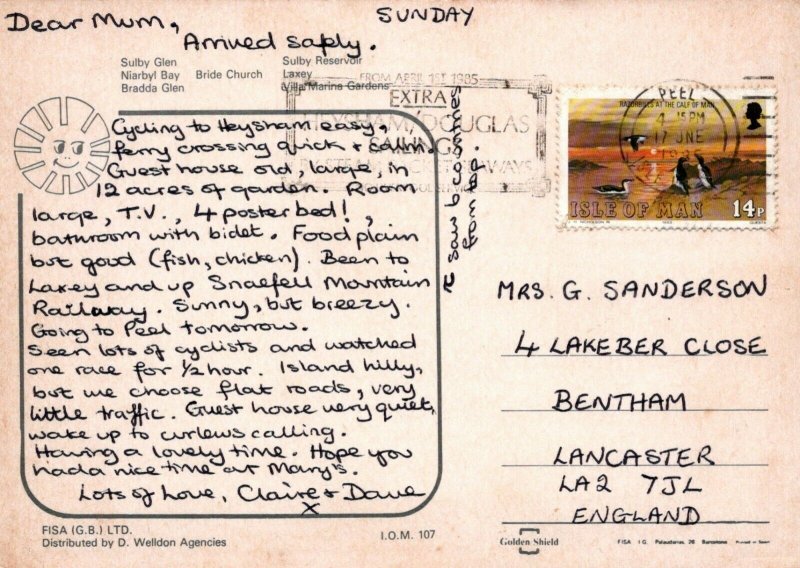 Dear Mum,
SUNDAY
Arrived safely.
Sulby Glen
Sulby Reservoir
Niarbyl Bay Bride Church Laxey
Bradda Glen Villa Marina Gardens
FROM APRIL 1ST 1985
EXTRA
HEYSHAM/DOUGLAS
SAILINGS
PEEL
4.15PM
17 JNE
RAZORBILLS AT THE CALF OF MAN
ISLE OF MAN 14P
Cycling to Heysham easy,
ferry crossing quick & calm.
Guest house old, large, in
12 acres of garden. Room
large, T.V., 4 poster bed!,
bathroom with bidet. Food plain
but good (fish, chicken). Been to
Laxey and up Snaefell Mountain
Railway. Sunny, but breezy.
Going to Peel tomorrow.
Seen lots of cyclists and watched
one race for 1/2 hour. Island hilly,
but we choose flat roads, very
little traffic. Guest house very quiet,
wake up to curlews calling.
Having a lovely time. Hope you
had a nice time at Mary's.
Lots of Love, Claire & Dave
x
saw 6 counties
from top.
MRS. G. SANDERSON
4 LAKEBER CLOSE
BENTHAM
LANCASTER
LA2 7JL
ENGLAND
FISA (G.B.) LTD.
Distributed by D. Welldon Agencies
I.O.M. 107
Golden Shield
FISA I.G. Palaudarias, 26 Barcelona Printed in Spain